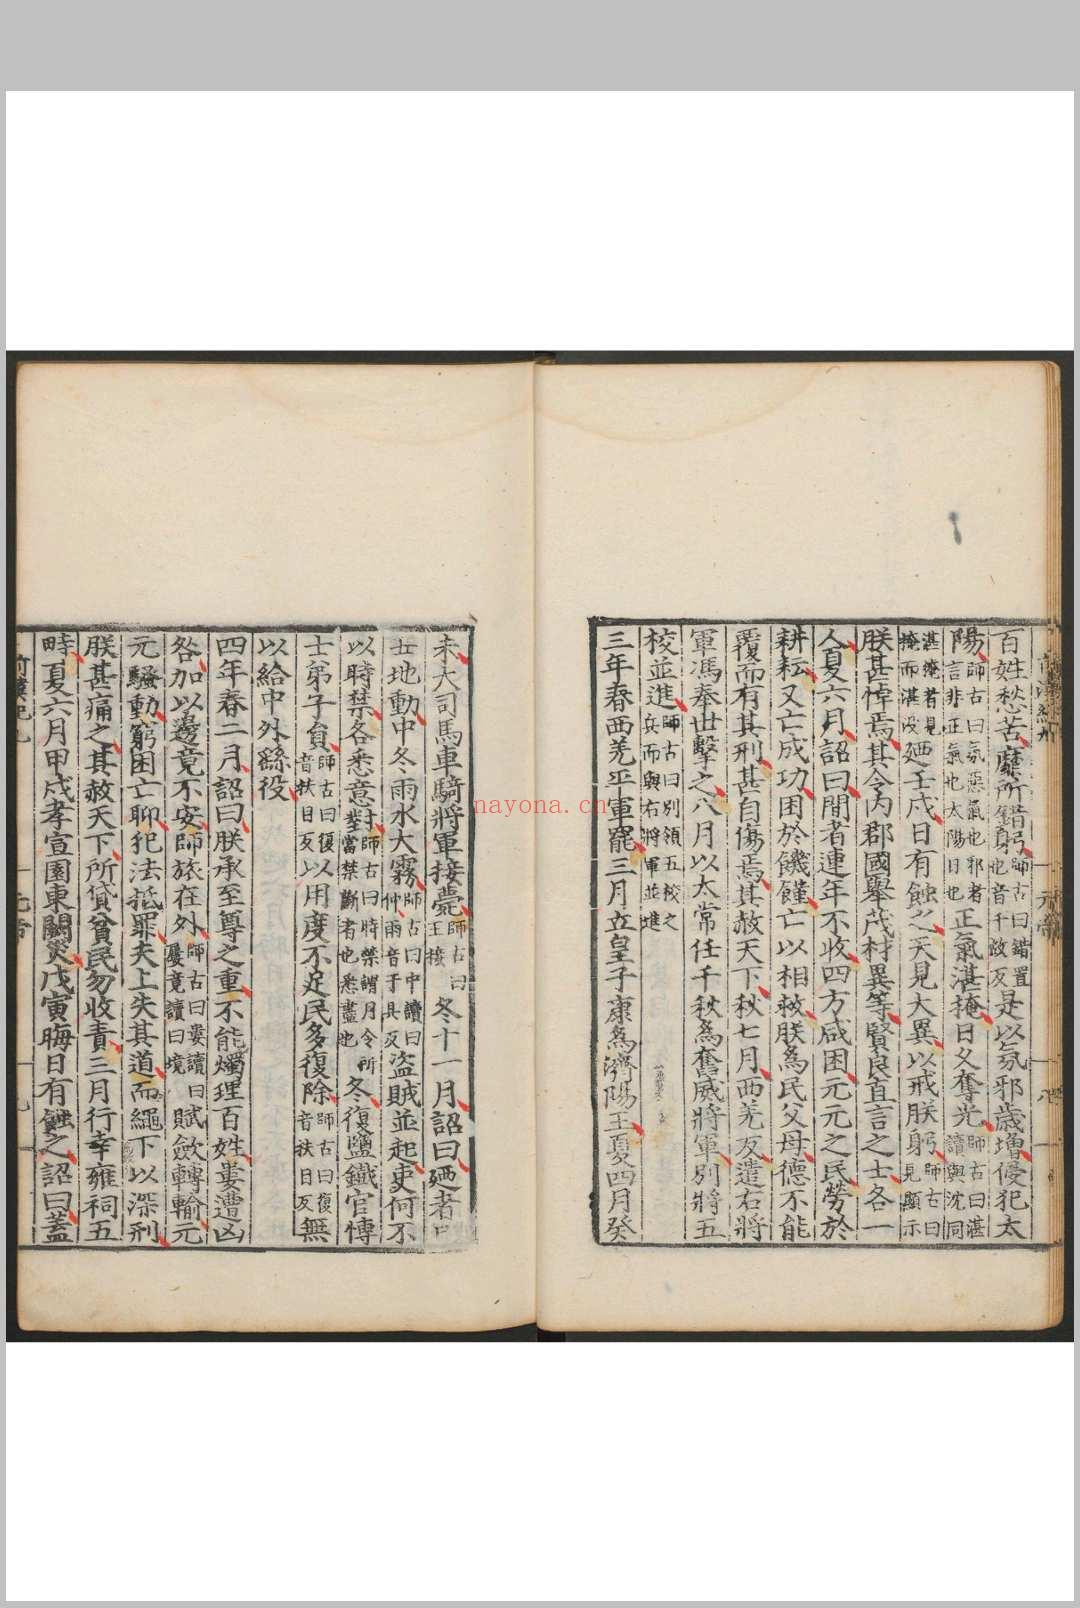 百姓愁苦靡所錯躬師古曰錯置也音千故反是以氛邪歲增侵犯太
陽師古曰氛惡氣也邪者言非正氣也太陽日也正氣湛掩日久奪光師古曰湛讀與沈同
湛掩者見掩而湛没廼壬戌日有蝕之天見大異以戒朕躬師古曰見顯示
朕甚悼焉其令内郡國舉茂材異等賢良直言之士各一
人夏六月詔曰間者連年不收四方咸困元元之民勞於
耕耘又亡成功困於饑饉亡以相救朕爲民父母德不能
覆而有其刑甚自傷焉其赦天下秋七月西羌反遣右將
軍馮奉世擊之八月以太常任千秋爲奮威將軍别將五
校並進師古曰别領五校之兵而與右將軍並進
三年春西羌平軍罷三月立皇子康爲濟陽王夏四月癸
未大司馬車騎將軍接薨師古曰王接冬十一月詔曰廼者
地動中冬雨水大霧師古曰中讀曰仲雨音于具反盜賊並起吏何不
以時禁各悉意對師古曰時禁謂月令所當禁斷者也悉盡也冬復鹽鐵官博
士弟子員師古曰復音扶目反以用度不足民多復除師古曰復音扶目反無
以給中外繇役
四年春二月詔曰朕承至尊之重不能燭理百姓婁遭凶
咎加以邊竟不安師旅在外師古曰婁讀曰屢竟讀曰境賦斂轉輸元
元騷動窮困亡聊犯法抵罪夫上失其道而繩下以深刑
朕甚痛之其赦天下所貸貧民勿收責三月行幸雍祠五
畤夏六月甲戌孝宣園東闕災戊寅晦日有蝕之詔曰蓋
nayona.cn